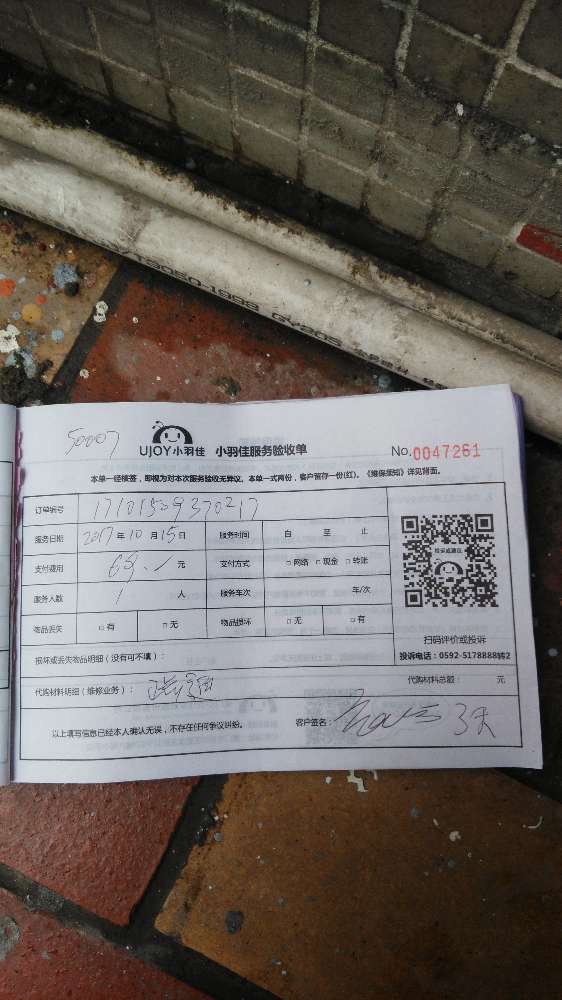 50007
UJOY小羽佳 小羽佳服务验收单 No.0047261
本单一经核签，即视为对本次服务验收无异议。本单一式两份，客户留存一份(红)。《维保须知》详见背面。
订单编号 17101509370217
服务日期 2017年10月15日 服务时间 自 至 止
支付费用 69.- 元 支付方式 □网络 □现金 □转账
服务人数 1 人 服务车次 车/次
物品丢失 □有 □无 物品损坏 □无 □有
扫码评价或投诉
投诉电话：0592-5178888转2
损坏或丢失物品明细（没有可不填）：
代购材料明细（维修业务）： 代购材料总额： 元
以上填写信息已经本人确认无误，不存在任何争议纠纷。 客户签名： 3天